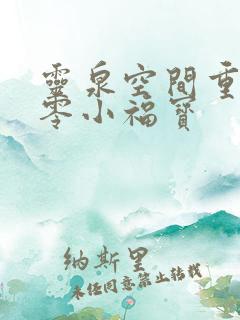 靈泉空間重
零小福寶
納斯里
未经同意禁止转载